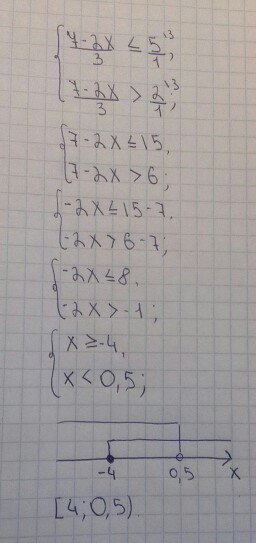 { (7-2x)/3 ≤ 5/1 \3,
{ (7-2x)/3 > 2/1 \3;
{ 7-2x≤15,
{ 7-2x>6;
{ -2x≤15-7,
{ -2x>6-7;
{ -2x≤8,
{ -2x>-1;
{ x≥-4,
{ x<0,5;
-4 0,5 x
[4;0,5).